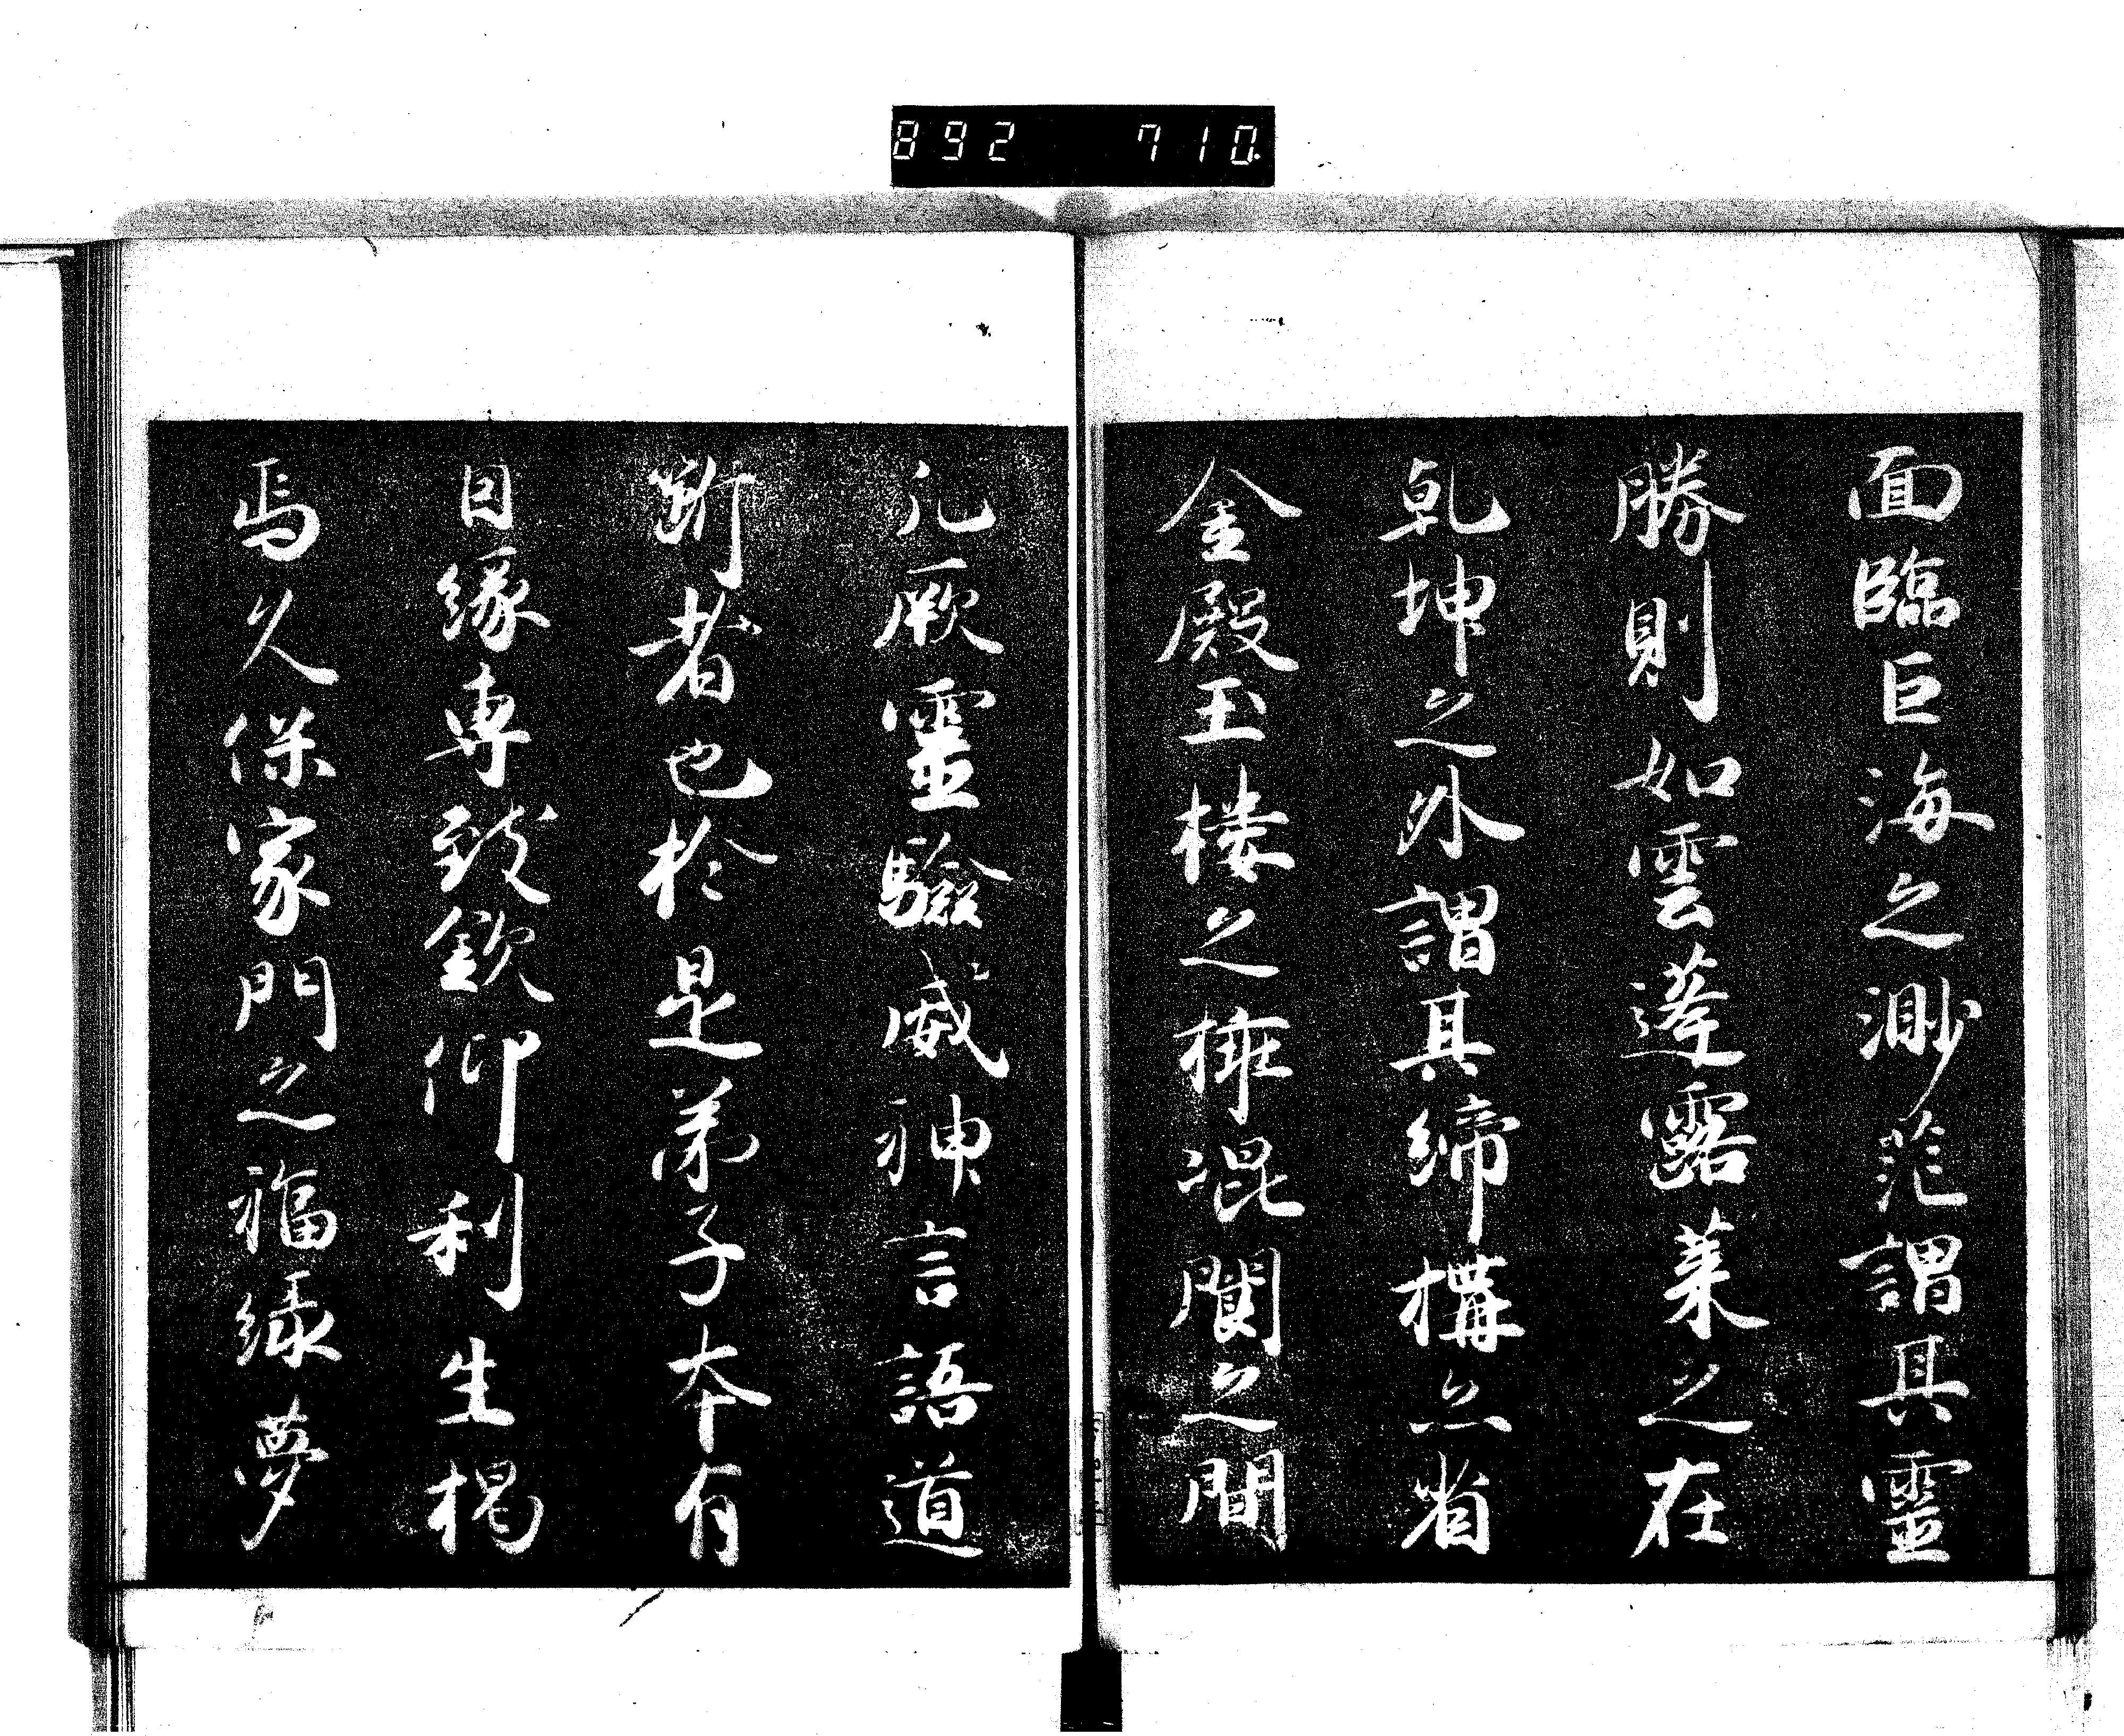 892 710
面臨巨海之渺茫謂其靈
勝則如雲蓬露萊之在
乾坤之外謂其締構亦省
金殿玉楼之擁混閬之間
凡厥靈驗威神言語道
断者也於是弟子本有
因縁専致欽仰利生揭
焉久保家門之福縁夢